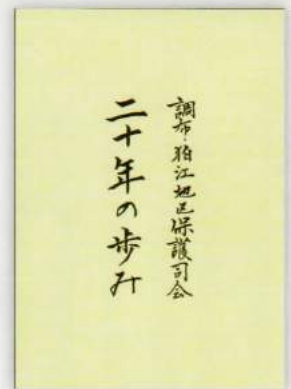 調布・狛江地区保護司会
二十年の歩み